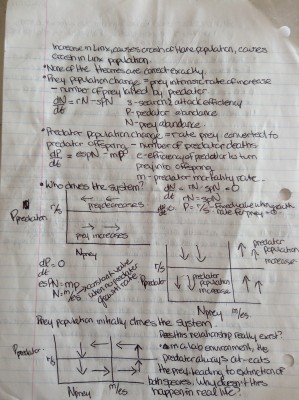 Increase in Linx, causes crash of Hare population, causes
crash in Linx population.
• None of the theories are correct exactly.
• Prey population change = prey intrinsic rate of increase
- number of prey killed by predator
dN/dt = rN - sPN  s - search & attack efficiency
P - predator abundance
N - prey abundance
• Predator population change = rate prey converted to
predator offspring - number of predator deaths
dP/dt = esPN - mP  e - efficiency of predator to turn
prey into offspring
m - predator mortality rate
• Who drives the system?  dN/dt = rN - sPN = 0
rN = sPN
P = r/s - Fixed value when growth
rate for prey = 0.
Ppredator r/s
prey decreases
prey increases
Nprey
predator population increase
predator population increase
Nprey m/es
dP/dt = 0
esPN = mP
N = m/es constant value
when no predator
growth rate
Prey population initially drives the system.
Ppredator r/s
Nprey m/es
Does this relationship really exist?
In a lab environment, the
predator always eats
the prey leading to extinction of
both species. Why doesn't this
happen in real life?